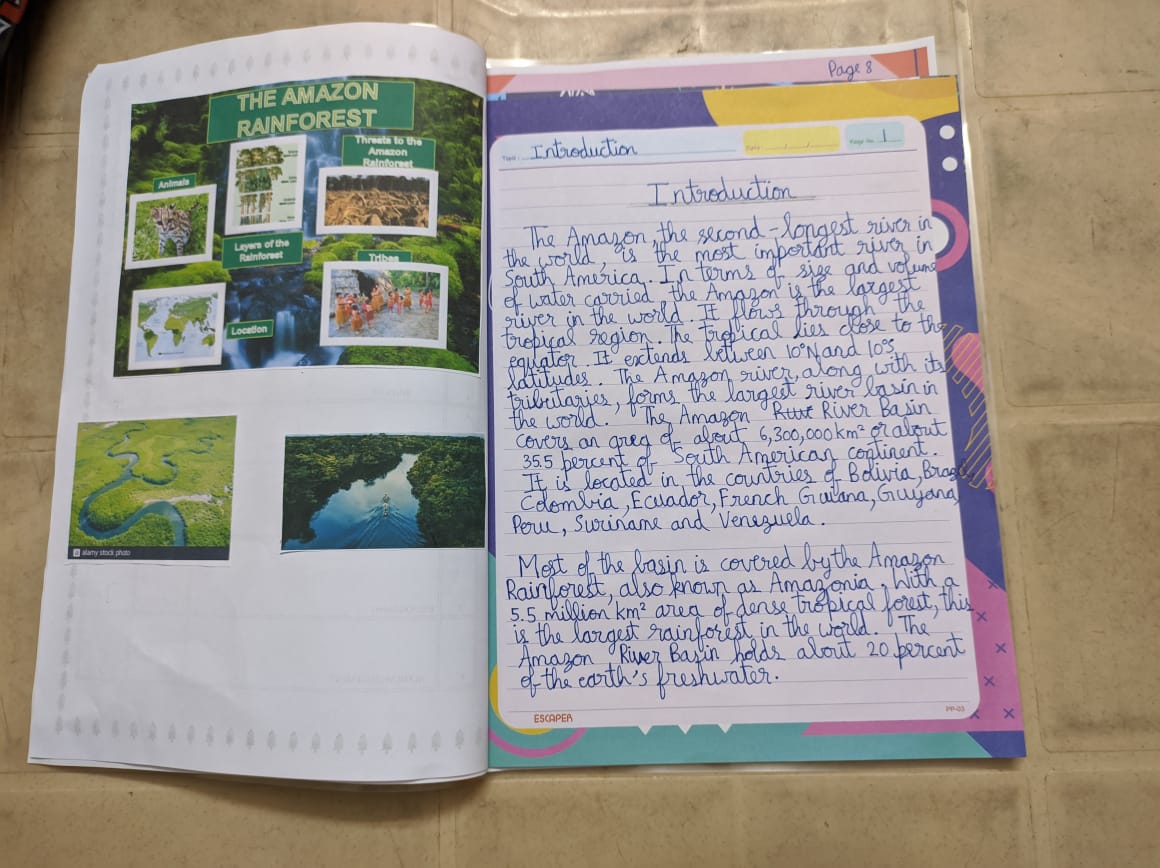 THE AMAZON
RAINFOREST
Threats to the
Amazon
Rainforest
Animals
Layers of the
Rainforest
Tribes
Location
a alamy stock photo
Page 8
Introduction
Date:
Page No. 1
Introduction
The Amazon, the second-longest river in
the world, is the most important river in
South America. In terms of size and volume
of water carried, the Amazon is the largest
river in the world. It flows through the
tropical region. The tropical lies close to the
equator. It extends between 10°N and 10°S
latitudes. The Amazon river, along with its
tributaries, forms the largest river basin in
the world. The Amazon River Basin
covers an area of about 6,300,000 km² or about
35.5 percent of South American continent.
It is located in the countries of Bolivia, Brazil
Colombia, Ecuador, French Guiana, Guyana,
Peru, Suriname and Venezuela.
Most of the basin is covered by the Amazon
Rainforest, also known as Amazonia. With a
5.5 million km² area of dense tropical forest, this
is the largest rainforest in the world. The
Amazon River Basin holds about 20 percent
of the earth's freshwater.
ESCAPER
PP-03